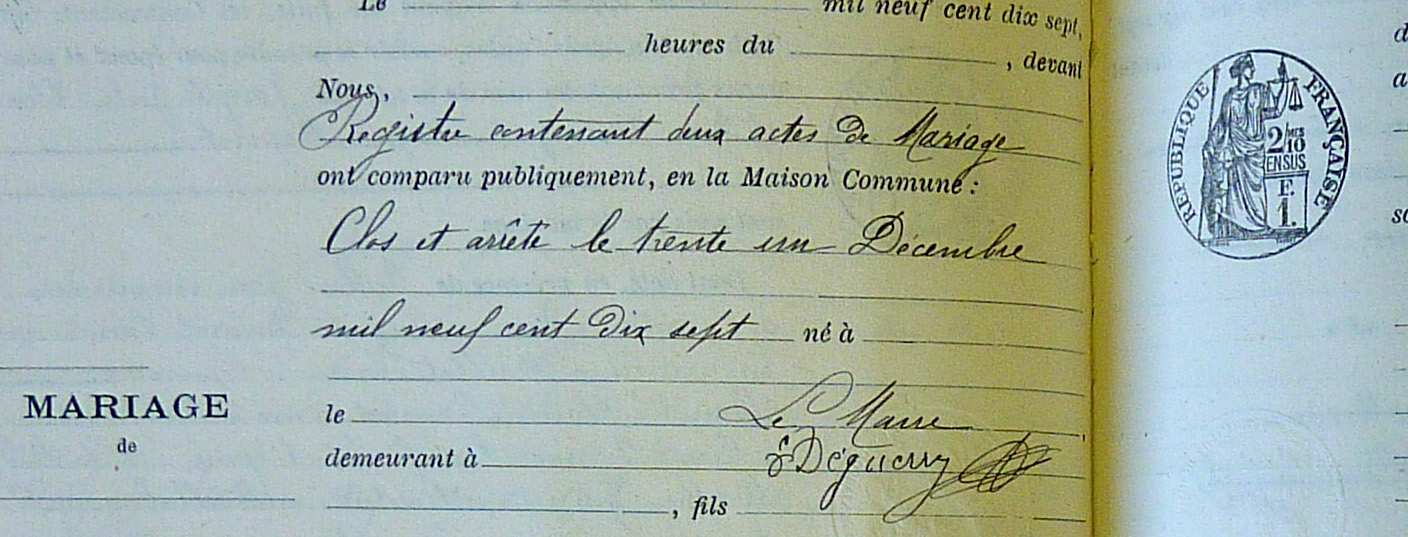 Le mil neuf cent dix sept,
heures du , devant
Nous,
Registre contenant deux actes de Mariage
ont comparu publiquement, en la Maison Commune :
Clos et arrêté le trente un Décembre
mil neuf cent Dix sept né à
MARIAGE
de
le Le Maire
demeurant à Déguerry
, fils
RÉPUBLIQUE FRANÇAISE
2/10
EN SUS
F.
1.